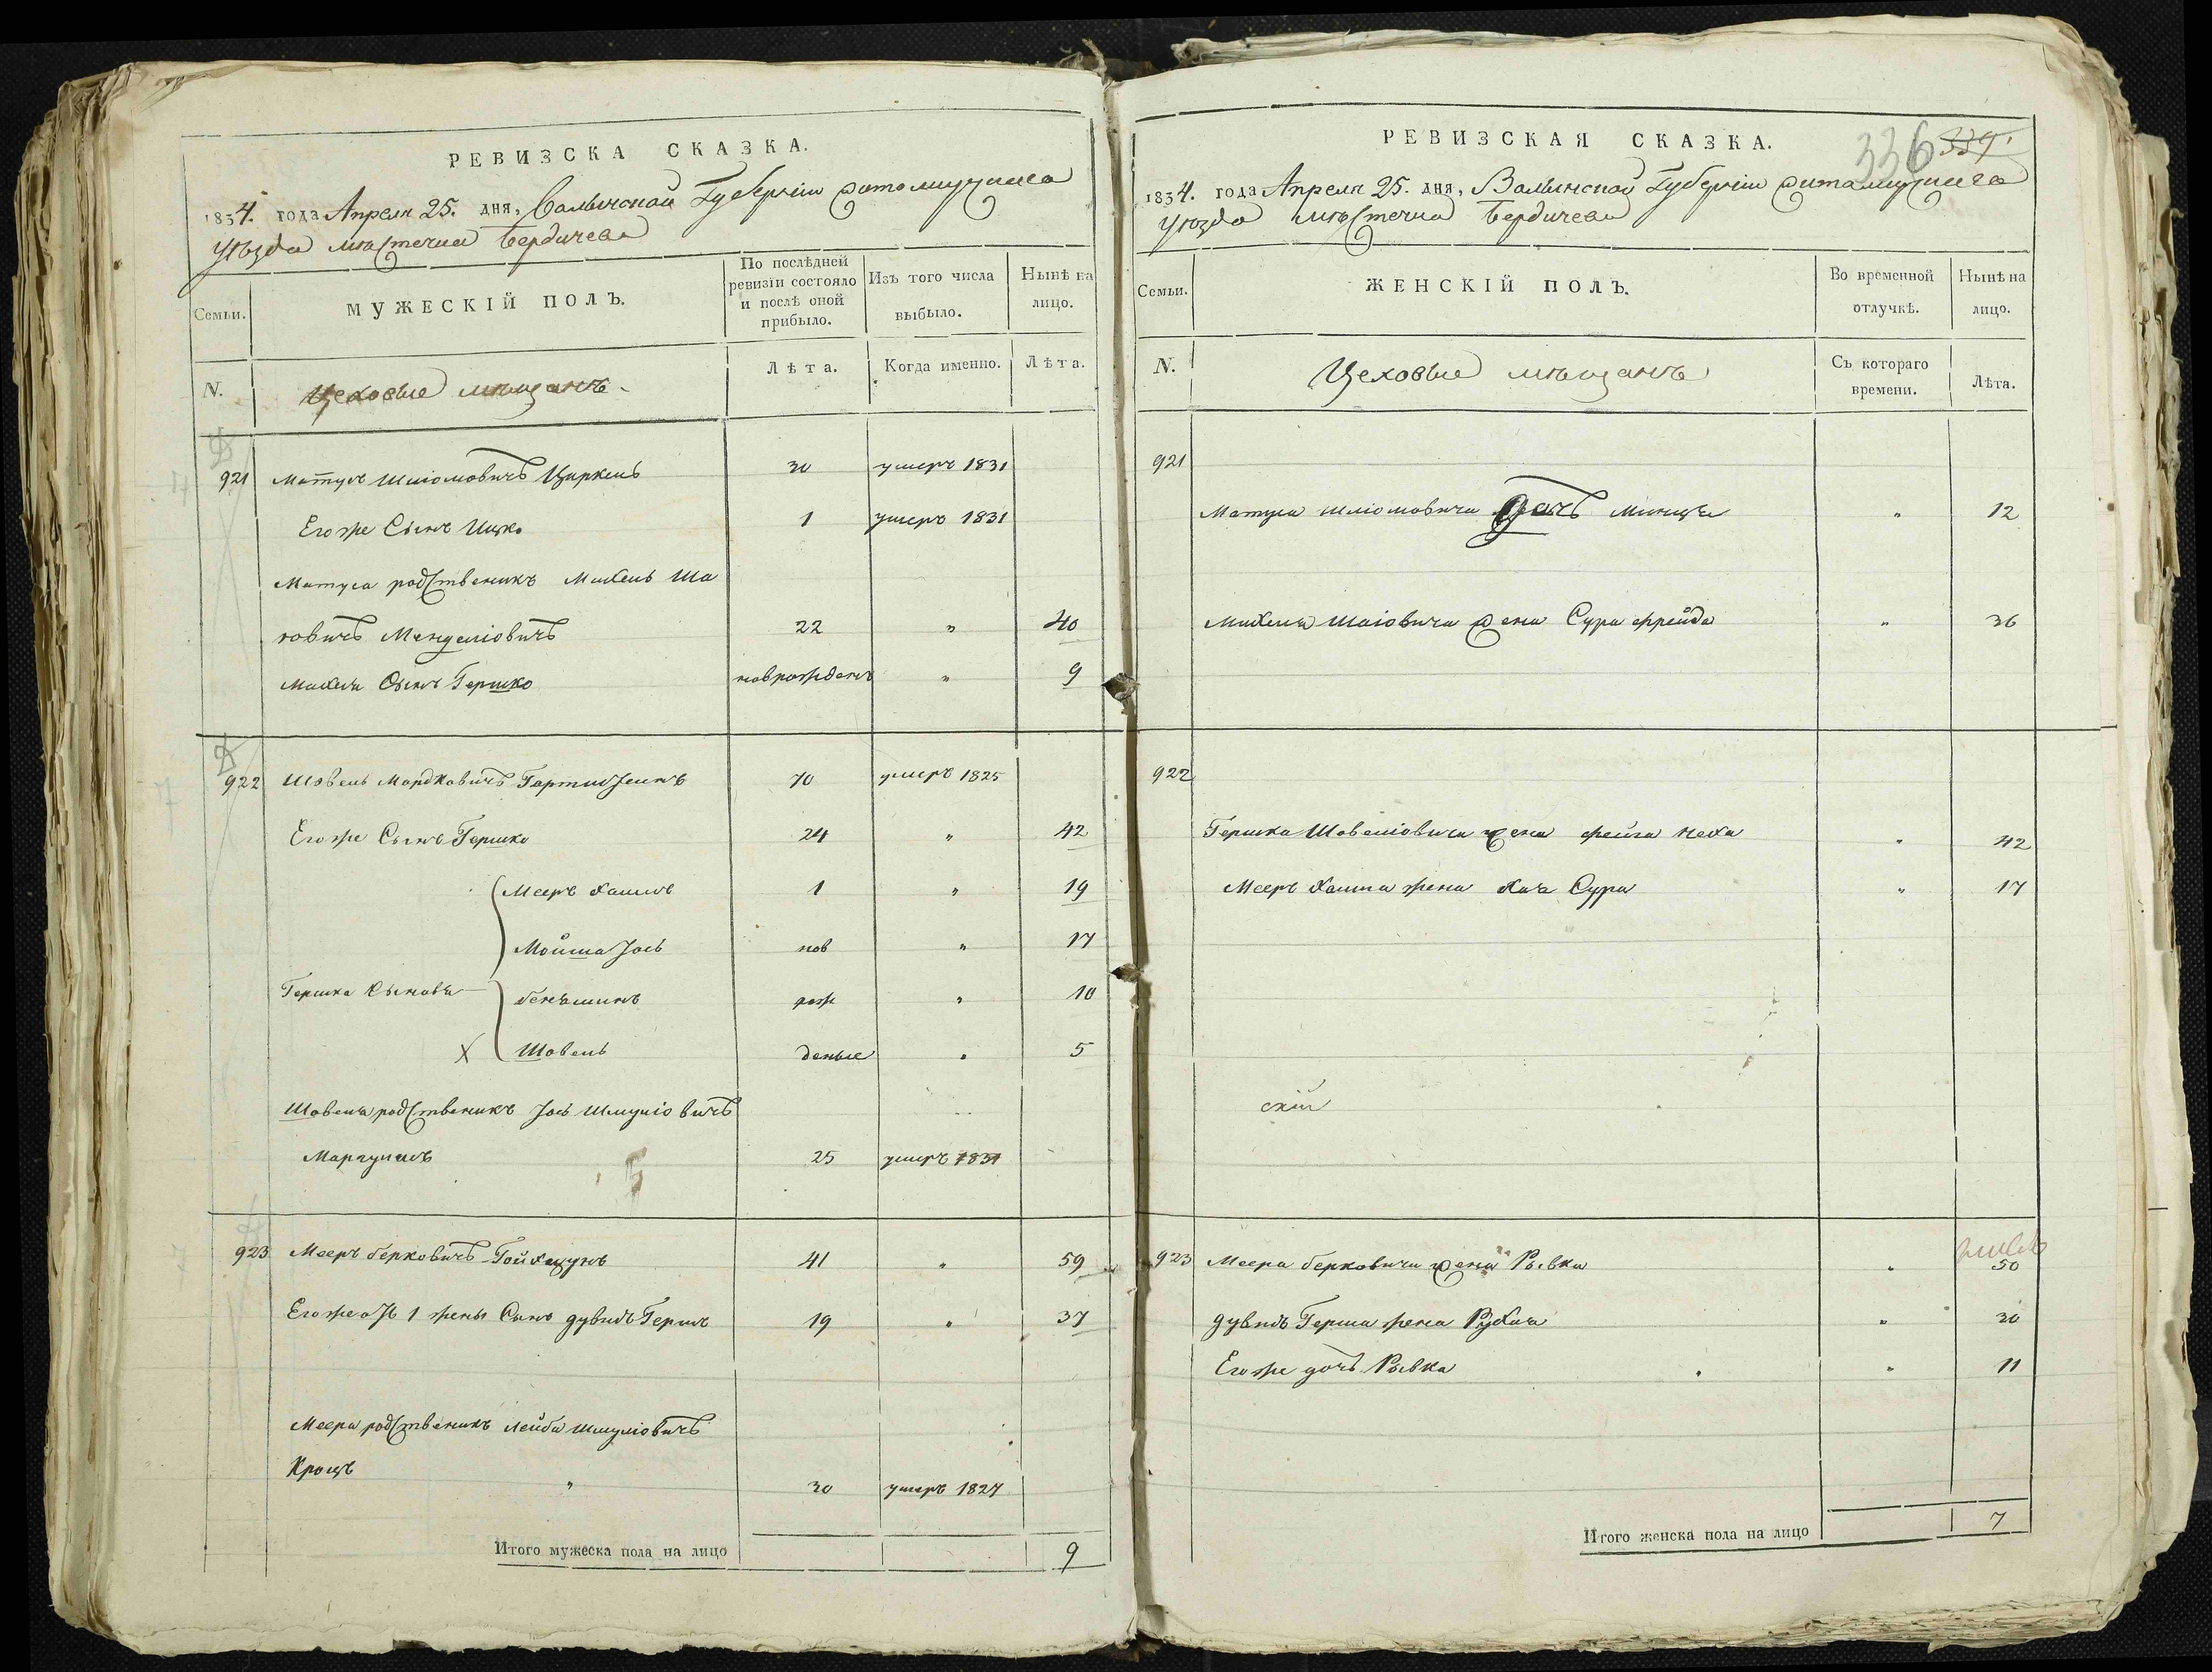 РЕВИЗСКА СКАЗКА.
1834. года Апреля 25. дня, Волынской Губерніи Житомирскаго
Уѣзда мѣстечка Бердичева
Семьи.
МУЖЕСКІЙ ПОЛЪ.
По послѣдней ревизіи состояло и послѣ оной прибыло.
Изъ того числа выбыло.
Нынѣ на лицо.
N.
Цеховые мѣщанъ
Лѣта.
Когда именно.
Лѣта.
921 Матусъ Шліомовичъ Циркель 30 умеръ 1831
Его же Сынъ Ицко 1 умеръ 1831
Матуса родственикъ Михель Ша
іовичъ Менделіовичъ 22 " 40
Михеля Сынъ Гершко новрожденъ " 9
922 Шовель Мордковичъ 70 умеръ 1825
Его же Сынъ Гершко 24 " 42
Мееръ Хаимъ 1 " 19
Мойша Іось нов " 17
Гершка Сыновья
бенъяминъ рож " 10
X Шовель деные " 5
Шовеля родственикъ Іось Шмуліовичъ
Маргулисъ 25 умеръ 1831
923 Мееръ берковичъ 41 " 59
Его же отъ 1 жены Сынъ дувидъ Гершъ 19 " 37
Меера родственикъ Лейба Шмуліовичъ
Кройцъ " 30 умеръ 1827
Итого мужеска пола на лицо 9
РЕВИЗСКАЯ СКАЗКА.
336 339
1834. года Апреля 25. дня, Волынской Губерніи Житомирскаго
Уѣзда мѣстечка Бердичева
Семьи.
ЖЕНСКІЙ ПОЛЪ.
Во временной отлучкѣ.
Нынѣ на лицо.
N.
Цеховые мѣщанъ
Съ котораго времени.
Лѣта.
921
Матуса Шліомовича дочь Минця " 12
Михеля Шаіовича жена Сура фрейда " 36
922
Гершка Шовеліовича жена фейга Неха " 42
Мееръ Хаима жена Хая Сура " 17
скій
923 Меера берковича жена Рывка " 50
дувидъ Герша жена Рухля " 30
Его же дочь Рывка " 11
Итого женска пола на лицо 7